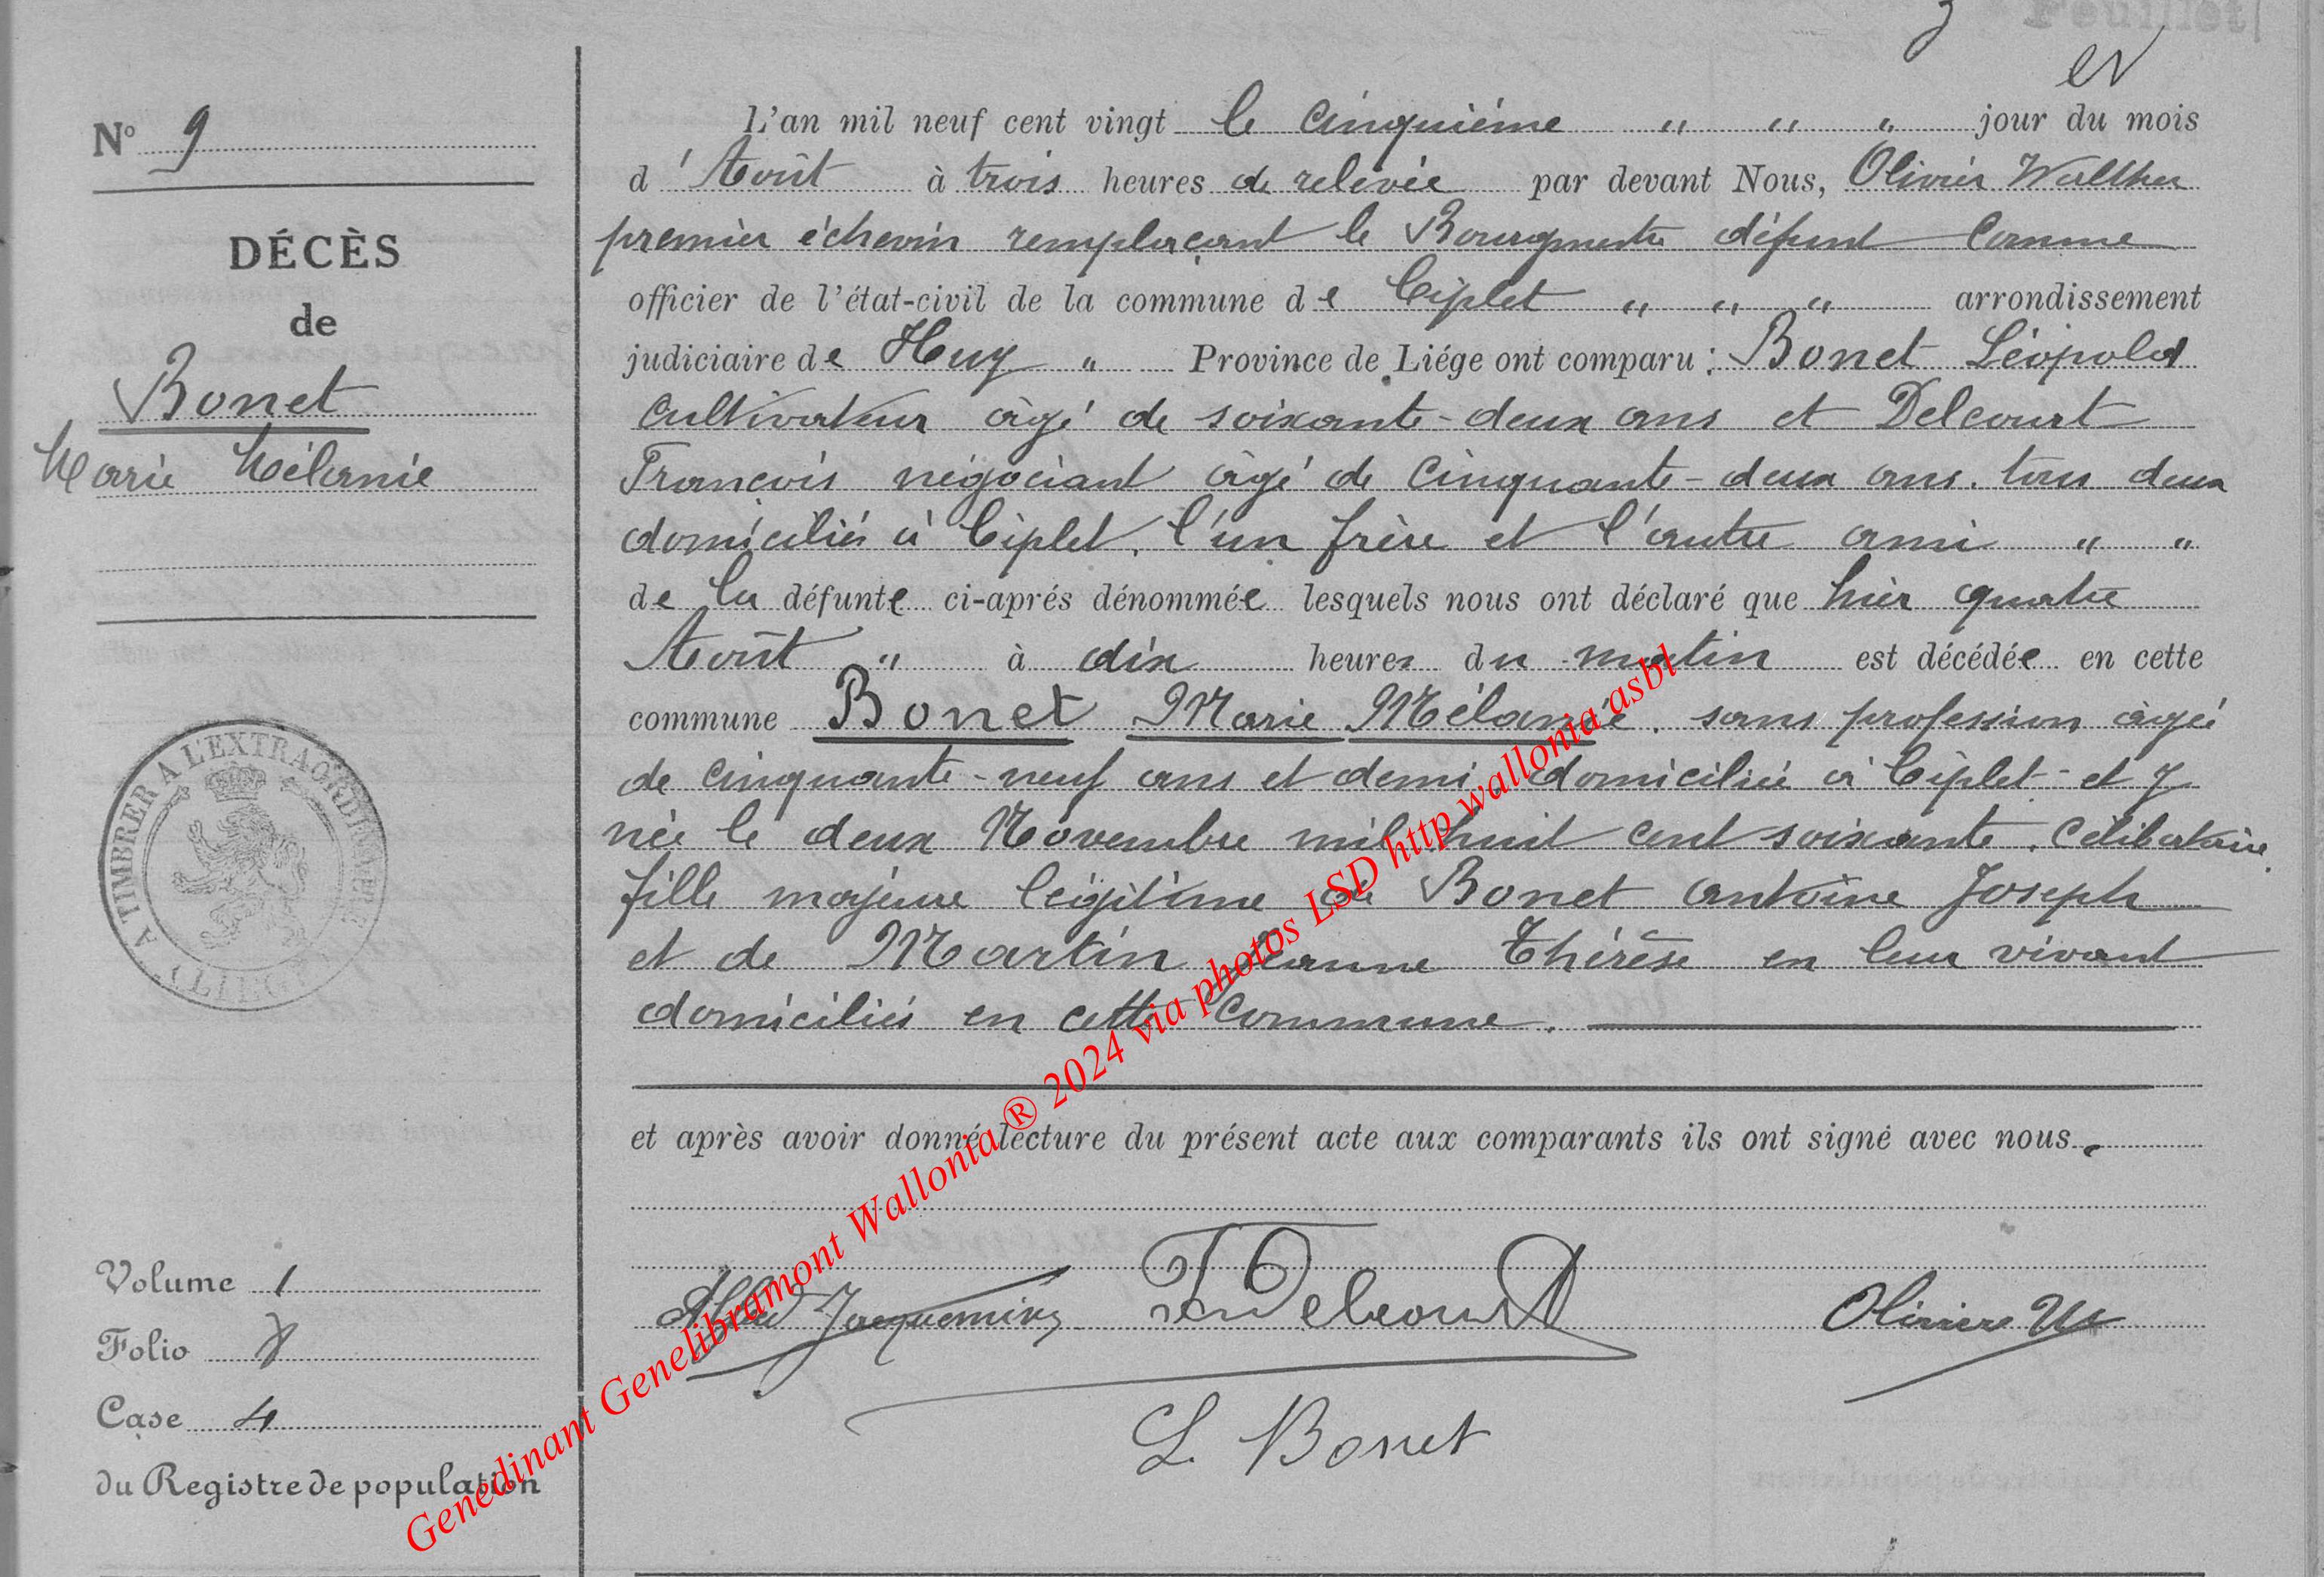 Feuillet
N° 9
DÉCÈS
de
Bonet
Marie Mélanie
L'an mil neuf cent vingt le cinquième " " " jour du mois
d'Août à trois heures de relevée par devant Nous, Olivier Walther
premier échevin remplaçant le Bourgmestre défunt comme
officier de l'état-civil de la commune de Ciplet " " " arrondissement
judiciaire de Huy " Province de Liége ont comparu : Bonet Léopold
cultivateur âgé de soixante-deux ans et Delcourt
François négociant âgé de cinquante-deux ans, tous deux
domiciliés à Ciplet, l'un frère et l'autre ami " "
de la défunte ci-aprés dénommée lesquels nous ont déclaré que hier quatre
Août " à dix heures du matin est décédée en cette
commune Bonet Marie Mélanie, sans profession, âgée
de cinquante-neuf ans et demi, domiciliée à Ciplet et y
née le deux Novembre mil huit cent soixante, célibataire,
fille majeure légitime de Bonet Antoine Joseph
et de Martin Jeanne Thérèse en leur vivant
domiciliés en cette commune.
et après avoir donné lecture du présent acte aux comparants ils ont signé avec nous.
Jacquemin Delcourt Olivier W
L. Bonet
A TIMBRER A L'EXTRAORDINAIRE
(LIEGE)
Volume 1
Folio
Case 4
du Registre de population
Genedinant Genelibramont Wallonia ® 2024 via photos LSD http wallonia asbl